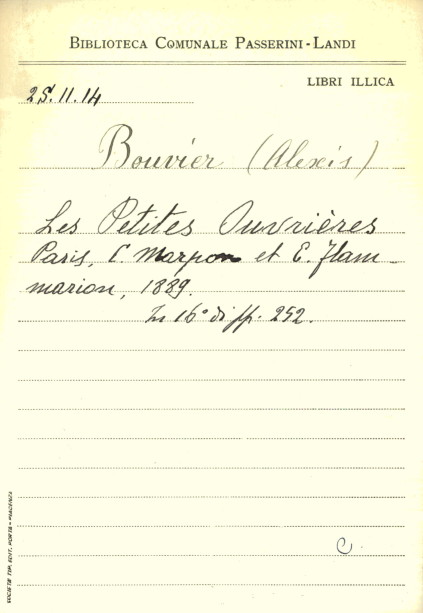 BIBLIOTECA COMUNALE PASSERINI-LANDI
LIBRI ILLICA
25.11.14
Bouvier (Alexis)
Les Petites Ouvrières
Paris, C. Marpon et E. Flam-
marion, 1889.
In 16° di pp. 252.
C.
SOCIETÀ TIP. EDIT. PORTA - PIACENZA